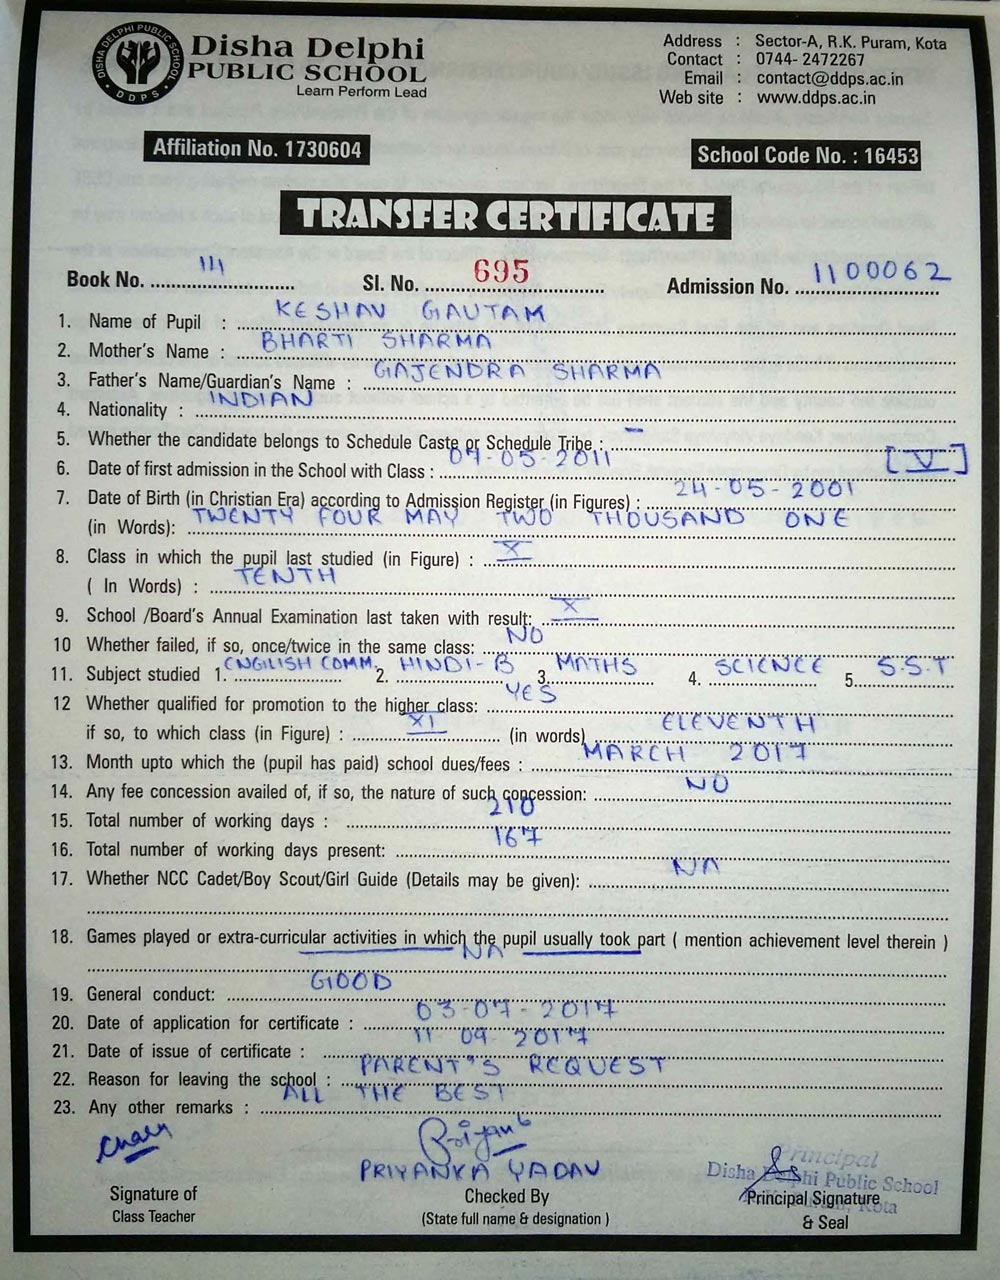 DISHA DELPHI PUBLIC SCHOOL
DDPS
Disha Delphi
PUBLIC SCHOOL
Learn Perform Lead
Address : Sector-A, R.K. Puram, Kota
Contact : 0744- 2472267
Email : contact@ddps.ac.in
Web site : www.ddps.ac.in
Affiliation No. 1730604
School Code No. : 16453
TRANSFER CERTIFICATE
Book No. 111 Sl. No. 695 Admission No. 1100062
1. Name of Pupil : KESHAV GAUTAM
2. Mother's Name : BHARTI SHARMA
3. Father's Name/Guardian's Name : GAJENDRA SHARMA
4. Nationality : INDIAN
5. Whether the candidate belongs to Schedule Caste or Schedule Tribe : -
6. Date of first admission in the School with Class : 07-05-2011 [V]
7. Date of Birth (in Christian Era) according to Admission Register (in Figures) : 24-05-2001
(in Words): TWENTY FOUR MAY TWO THOUSAND ONE
8. Class in which the pupil last studied (in Figure) : X
( In Words) : TENTH
9. School /Board's Annual Examination last taken with result: X
10 Whether failed, if so, once/twice in the same class: NO
11. Subject studied 1. ENGLISH COMM. 2. HINDI-B 3. MATHS 4. SCIENCE 5. S.S.T
12 Whether qualified for promotion to the higher class: YES
if so, to which class (in Figure) : XI (in words) ELEVENTH
13. Month upto which the (pupil has paid) school dues/fees : MARCH 2017
14. Any fee concession availed of, if so, the nature of such concession: NO
15. Total number of working days : 210
16. Total number of working days present: 167
17. Whether NCC Cadet/Boy Scout/Girl Guide (Details may be given): NA
18. Games played or extra-curricular activities in which the pupil usually took part ( mention achievement level therein )
NA
19. General conduct: GOOD
20. Date of application for certificate : 03-07-2017
21. Date of issue of certificate : 11-09-2017
22. Reason for leaving the school : PARENT'S REQUEST
23. Any other remarks : ALL THE BEST
PRIYANKA YADAV
Principal
Disha Delphi Public School
R.K. Puram, Kota
Signature of
Class Teacher
Checked By
(State full name & designation )
Principal Signature
& Seal